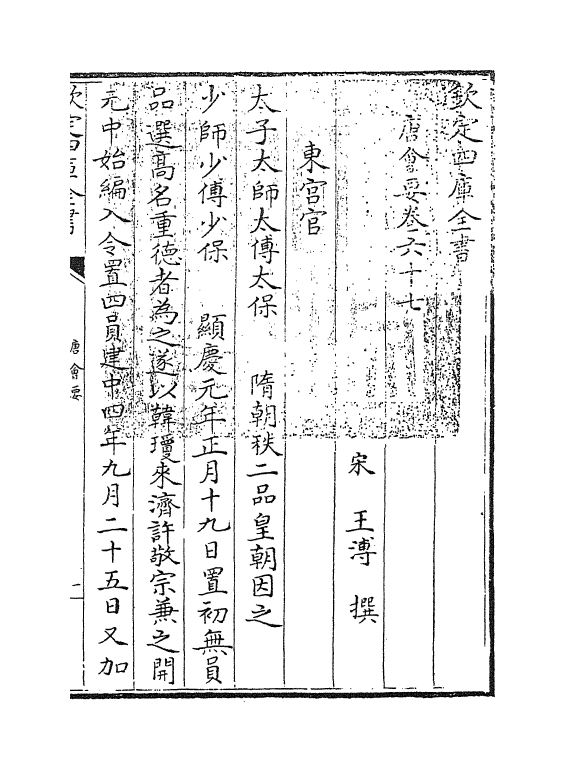 欽定四庫全書
唐會要卷六十七
宋 王溥 撰
東宮官
太子太師太傅太保 隋朝秩二品皇朝因之
少師少傅少保 顯慶元年正月十九日置初無員
品選高名重德者為之遂以韓瓊來濟許敬宗兼之開
元中始編入令置四員建中四年九月二十五日又加
唐會要